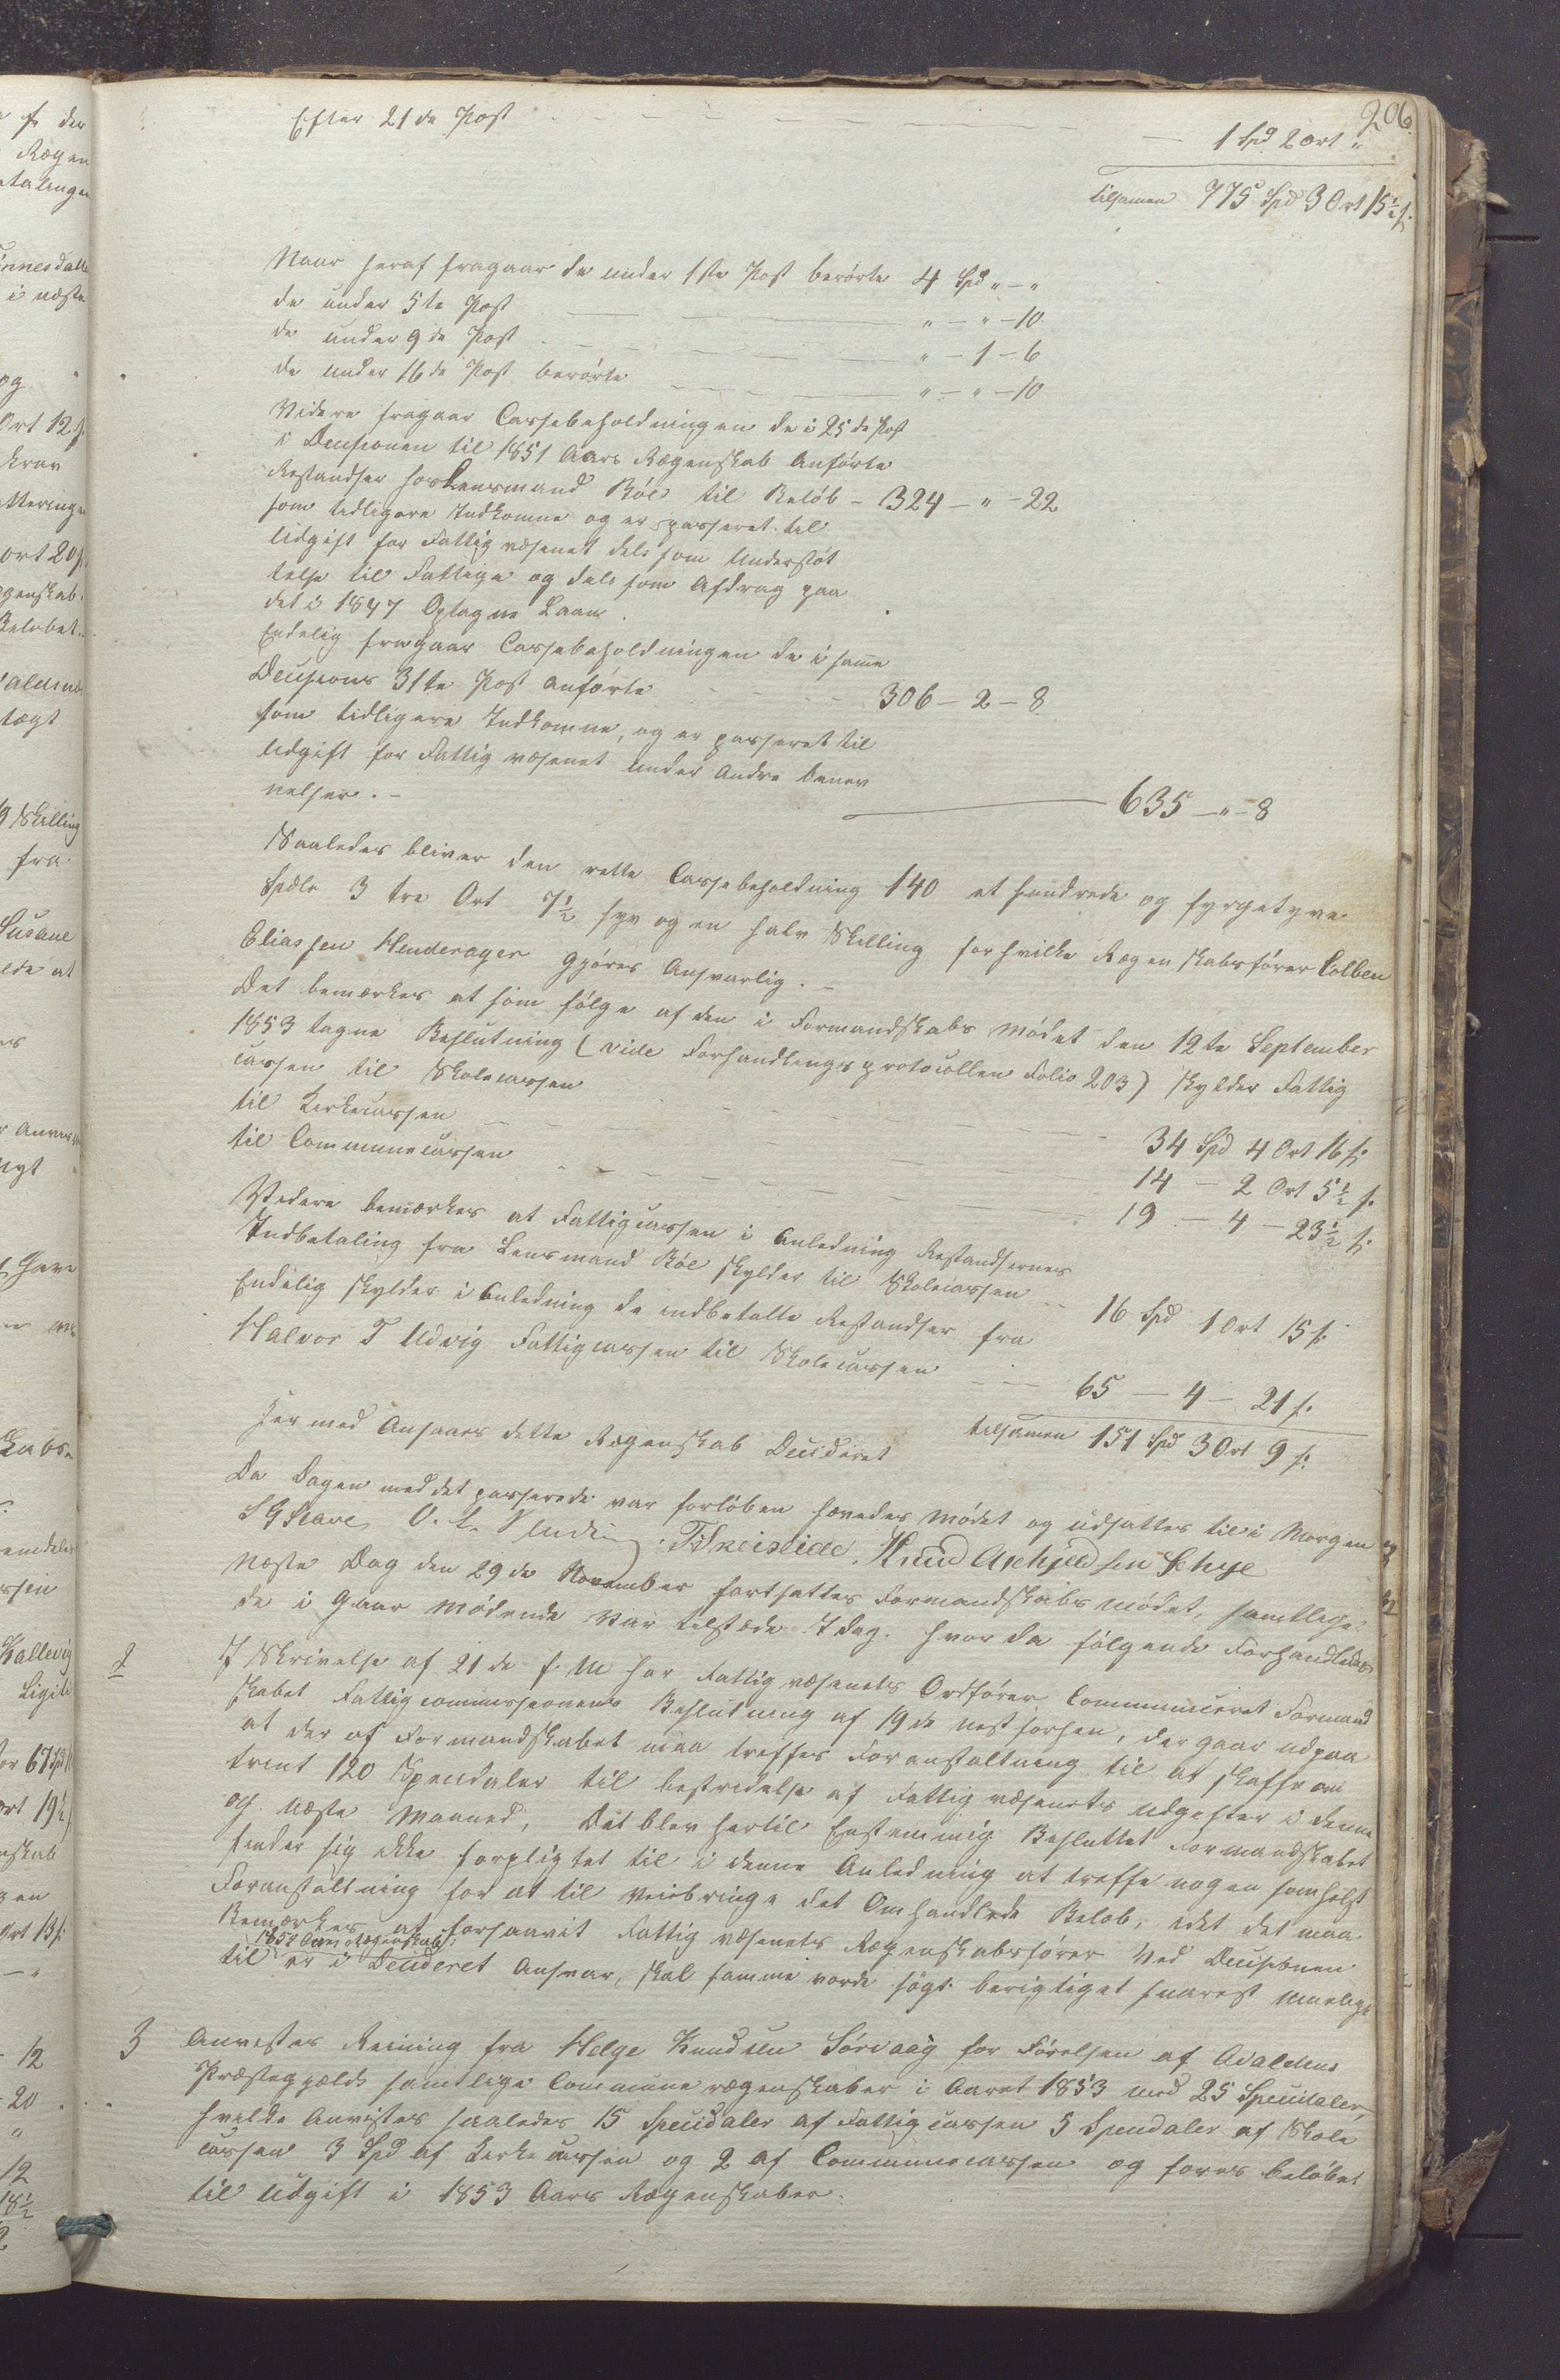 206
Efter 21de Post — — — — — 1 Spd 2 Ort "
tilsamen 775 Spd 3 Ort 15½ s.
Naar heraf fragaar de under 1ste Post berörte 4 Spd " — "
de under 5te Post — — — " — " — 10
de under 9de Post — — — " — 1 — 6
de under 16de Post berörte — — " — " — 10
Videre fragaar Cassebeholdningen de i 25de Post
i Decisionen til 1851 Aars Regenskab Anførte
Restandser hos Lensmand Röe til Beløb — 324 — " — 22
som tidligere Indkomne og er passeret til
Udgift for Fattigvæsenet dels som Understøt
telse til Fattige og dels som Afdrag paa
det i 1847 Optagne Laan.
Endelig fragaar Cassebeholdningen de i samme
Decisions 31te Post Anførte — — — 306 — 2 — 8
som tidligere Indkomne, og er passeret til
Udgift for Fattigvæsenet under Andre Benæv
nelser. — — 635 — " — 8
Saaledes bliver den rette Cassebeholdning 140 et hundrede og fyrgetyve
Spdlr 3 tre Ort 7½ syv og en halv Skilling for hvilke Regenskabsfører Colben
Eliassen Henderager gjöres Ansvarlig. —
Det bemærkes at som følge af den i Formandskabs Mödet den 12te September
1853 tagne Beslutning (vide Forhandlingsprotocollen Folio 203) skylder Fattig
cassen til Skolecassen — — — 34 Spd 4 Ort 16 s.
til Kirkecassen — — — 14 — 2 Ort 5½ s.
til Communecassen — — — 19 — 4 — 23½ s.
Videre bemærkes at Fattigcassen i Anledning Restandsernes
Indbetaling fra Lensmand Röe skylder til Skolecassen — 16 Spd 1 Ort 15 s.
Endelig skylder i Anledning de indbetalte Restandser fra
Halvor T Udvig Fattigcassen til Skolecassen — — 65 — 4 — 21 s.
tilsamen 151 Spd 3 Ort 9 s.
Hermed Ansaaes dette Regenskab Decideret
Da Dagen med det passerede var forløben hævedes Mödet og udsattes til i Morgen
Knud Askjeldsen
Næste Dag den 29de November fortsattes Formandskabsmödet, samtlige
de i Gaar Mödende var tilstede Idag. hvor da følgende Forhandledes
2 I Skrivelse af 21de f. M har Fattigvæsenets Ordfører Communiceret Formand
skabet Fattigcommissionens Beslutning af 19de nest forhen, der gaar ud paa
at der af Formandskabet maa træffes Foranstaltning til at skaffe om
trent 120 Speciedaler til bestridelse af Fattigvæsenets Udgifter i denne
og Næste Maaned, Det blev hertil Enstemmig Besluttet Formandskabet
finder sig ikke forpligtet til i denne Anledning at træffe nogen somhelst
Foranstaltning for at til veiebringe det Omhandlede Beløb, idet det maa
Bemærkes at forsaavit Fattigvæsenets Regenskabsfører Ved Decisionen
1852 Aars Regenskab
til er i Decideret Ansvar, skal samme vorde søgt berigtiget snarest mueligt
3 Anvistes Reining fra Helge Knudsen Sørvaag for Førelsen af Avaldsnes
Præstegjelds samtlige Communeregenskaber i Aaret 1853 med 25 Speciedaler,
hvilke Anvistes saaledes 15 Speciedaler af Fattigcassen 5 Speciedaler af Skole
cassen 3 Spd af Kirkecassen og 2 af Communecassen og føres beløbet
til Udgift i 1853 Aars Regenskaber.